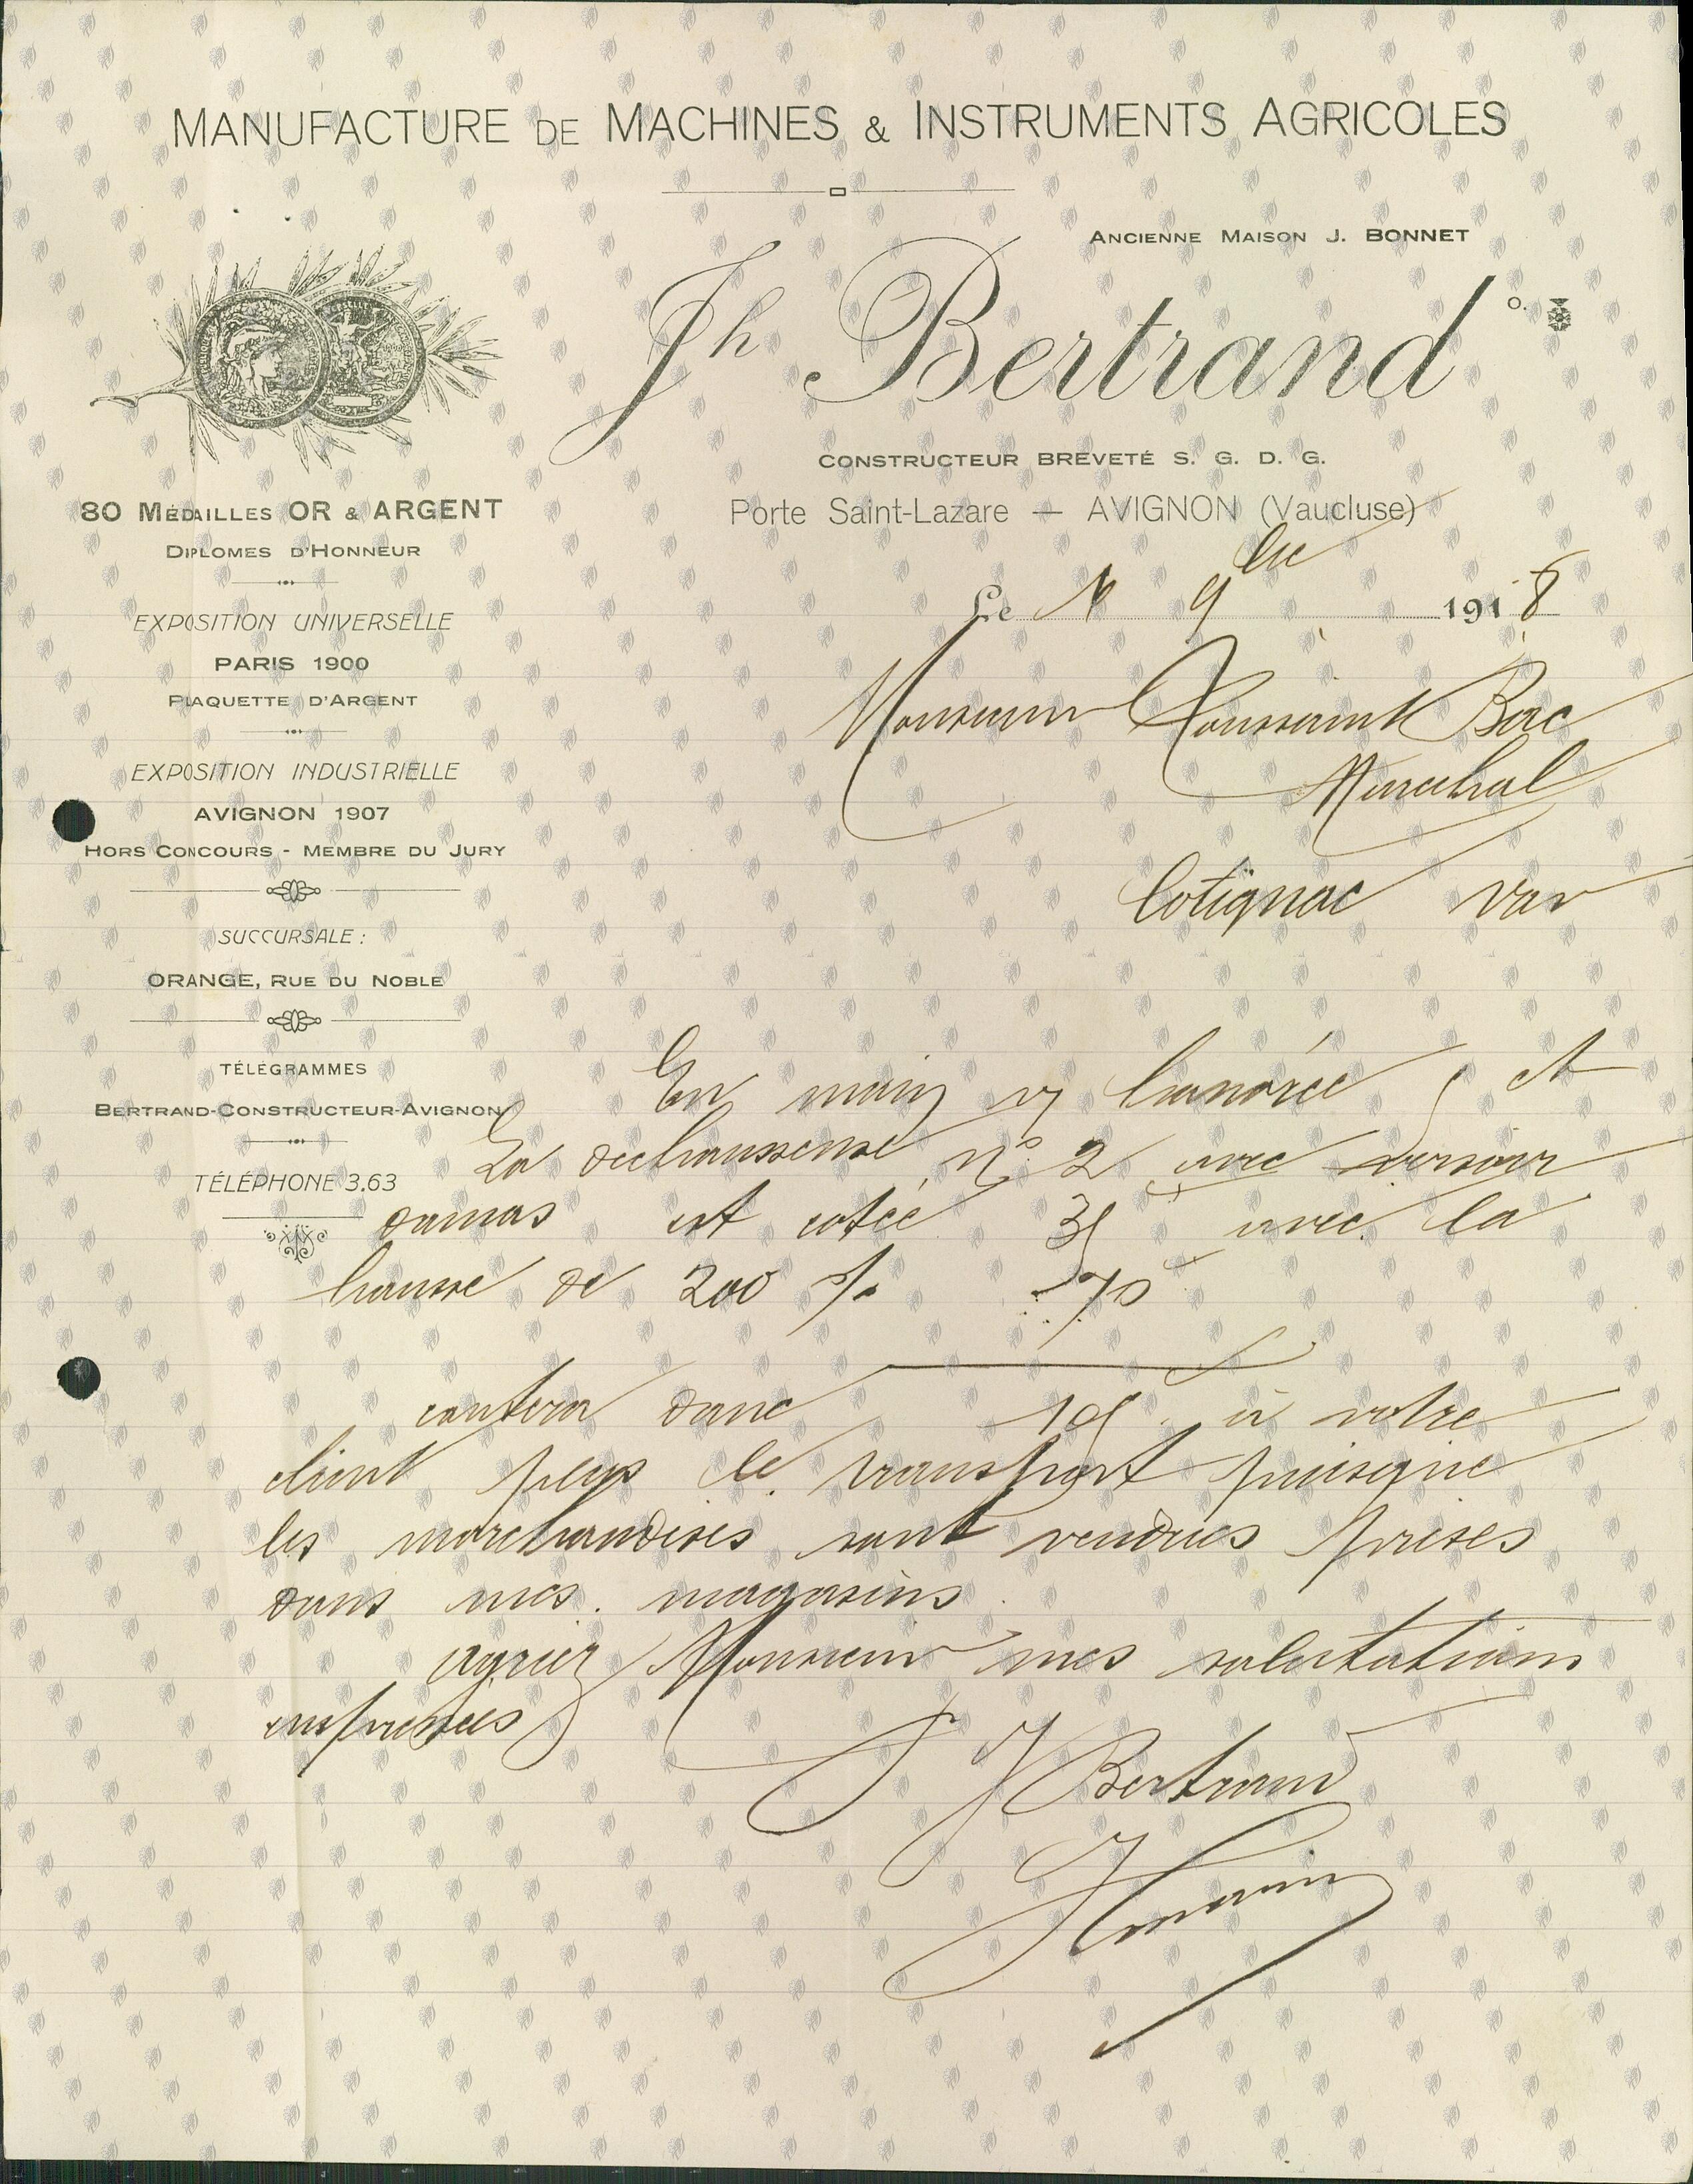 MANUFACTURE DE MACHINES & INSTRUMENTS AGRICOLES
ANCIENNE MAISON J. BONNET
Jh Bertrand O.
CONSTRUCTEUR BREVETÉ S. G. D. G.
Porte Saint-Lazare — AVIGNON (Vaucluse)
80 MÉDAILLES OR & ARGENT
DIPLOMES D'HONNEUR
EXPOSITION UNIVERSELLE
PARIS 1900
PLAQUETTE D'ARGENT
EXPOSITION INDUSTRIELLE
AVIGNON 1907
HORS CONCOURS - MEMBRE DU JURY
SUCCURSALE :
ORANGE, RUE DU NOBLE
TÉLÉGRAMMES
BERTRAND-CONSTRUCTEUR-AVIGNON
TÉLÉPHONE 3.63
Le 9bre 1918
Monsieur Toussaint Bac
Marechal
Cotignac Var
En main honorée et
La dechausseuse n° 2 avec versoir
damas est cotée 35 avec la
hausse de 200 % 70
coutera donc 105 à votre
client plus le transport puisque
les marchandises sont vendues prises
dans mes magasins
agréez Monsieur mes salutations
empressées
J Bertrand